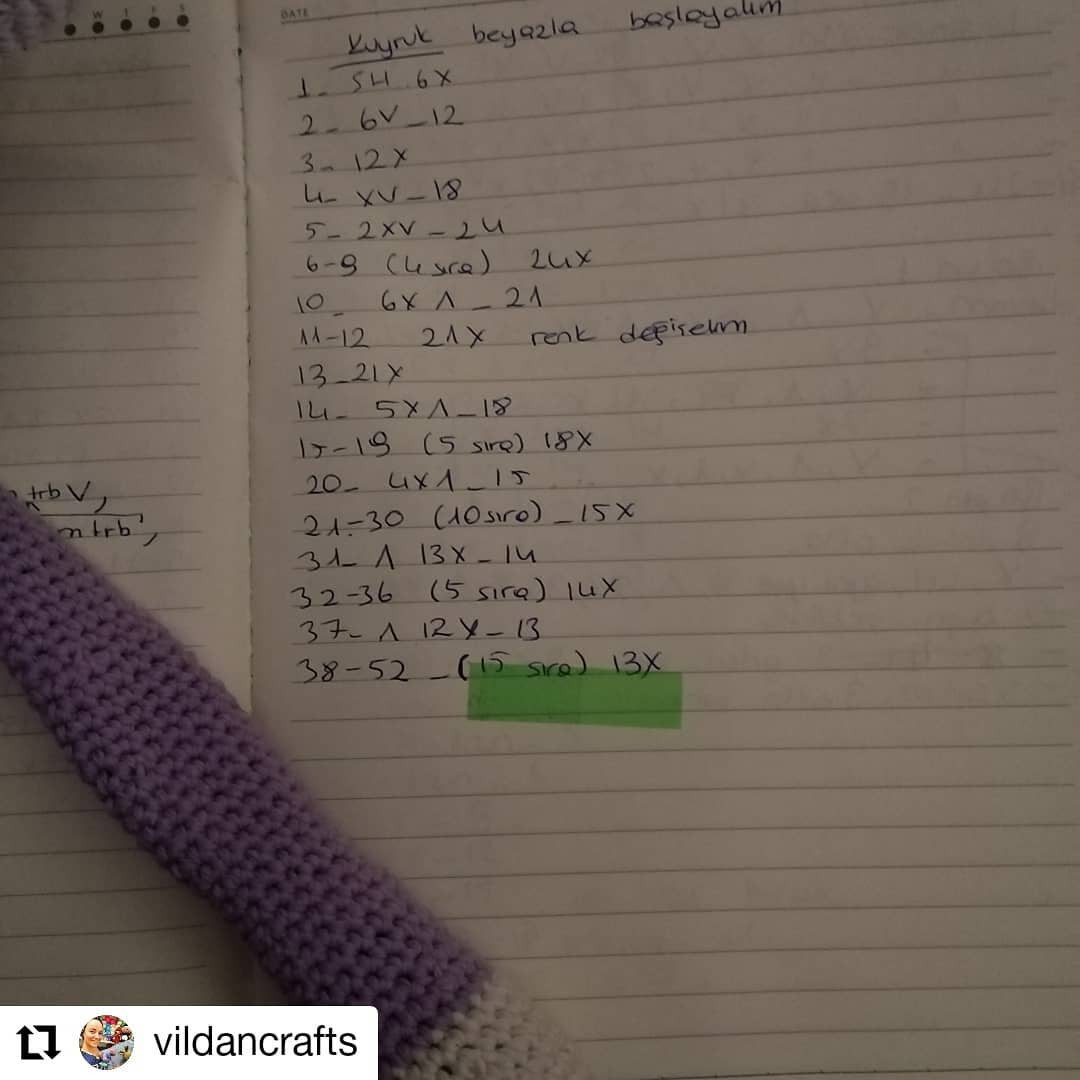 W T F S
DATE
Kuyruk beyazla başlayalım
1- SH 6X
2- 6V-12
3- 12X
4- XV-18
5- 2XV-24
6-9 (4 sıra) 24X
10- 6XΛ-21
11-12 21X renk değişelim
13-21X
14- 5XΛ-18
15-19 (5 sıra) 18X
20- 4XΛ-15
21-30 (10 sıra)-15X
31- Λ 13X-14
32-36 (5 sıra) 14X
37- Λ 12X-13
38-52-(15 sıra) 13X
trb V,
trb,
vildancrafts